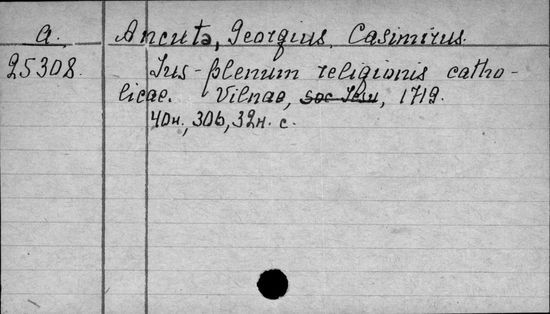 a. Ancuta, Georgius Casimirus.
25308. Jus plenum religionis catho-
licae. Vilnae, soc Jesu, 1719.
40н., 306, 32н. с.